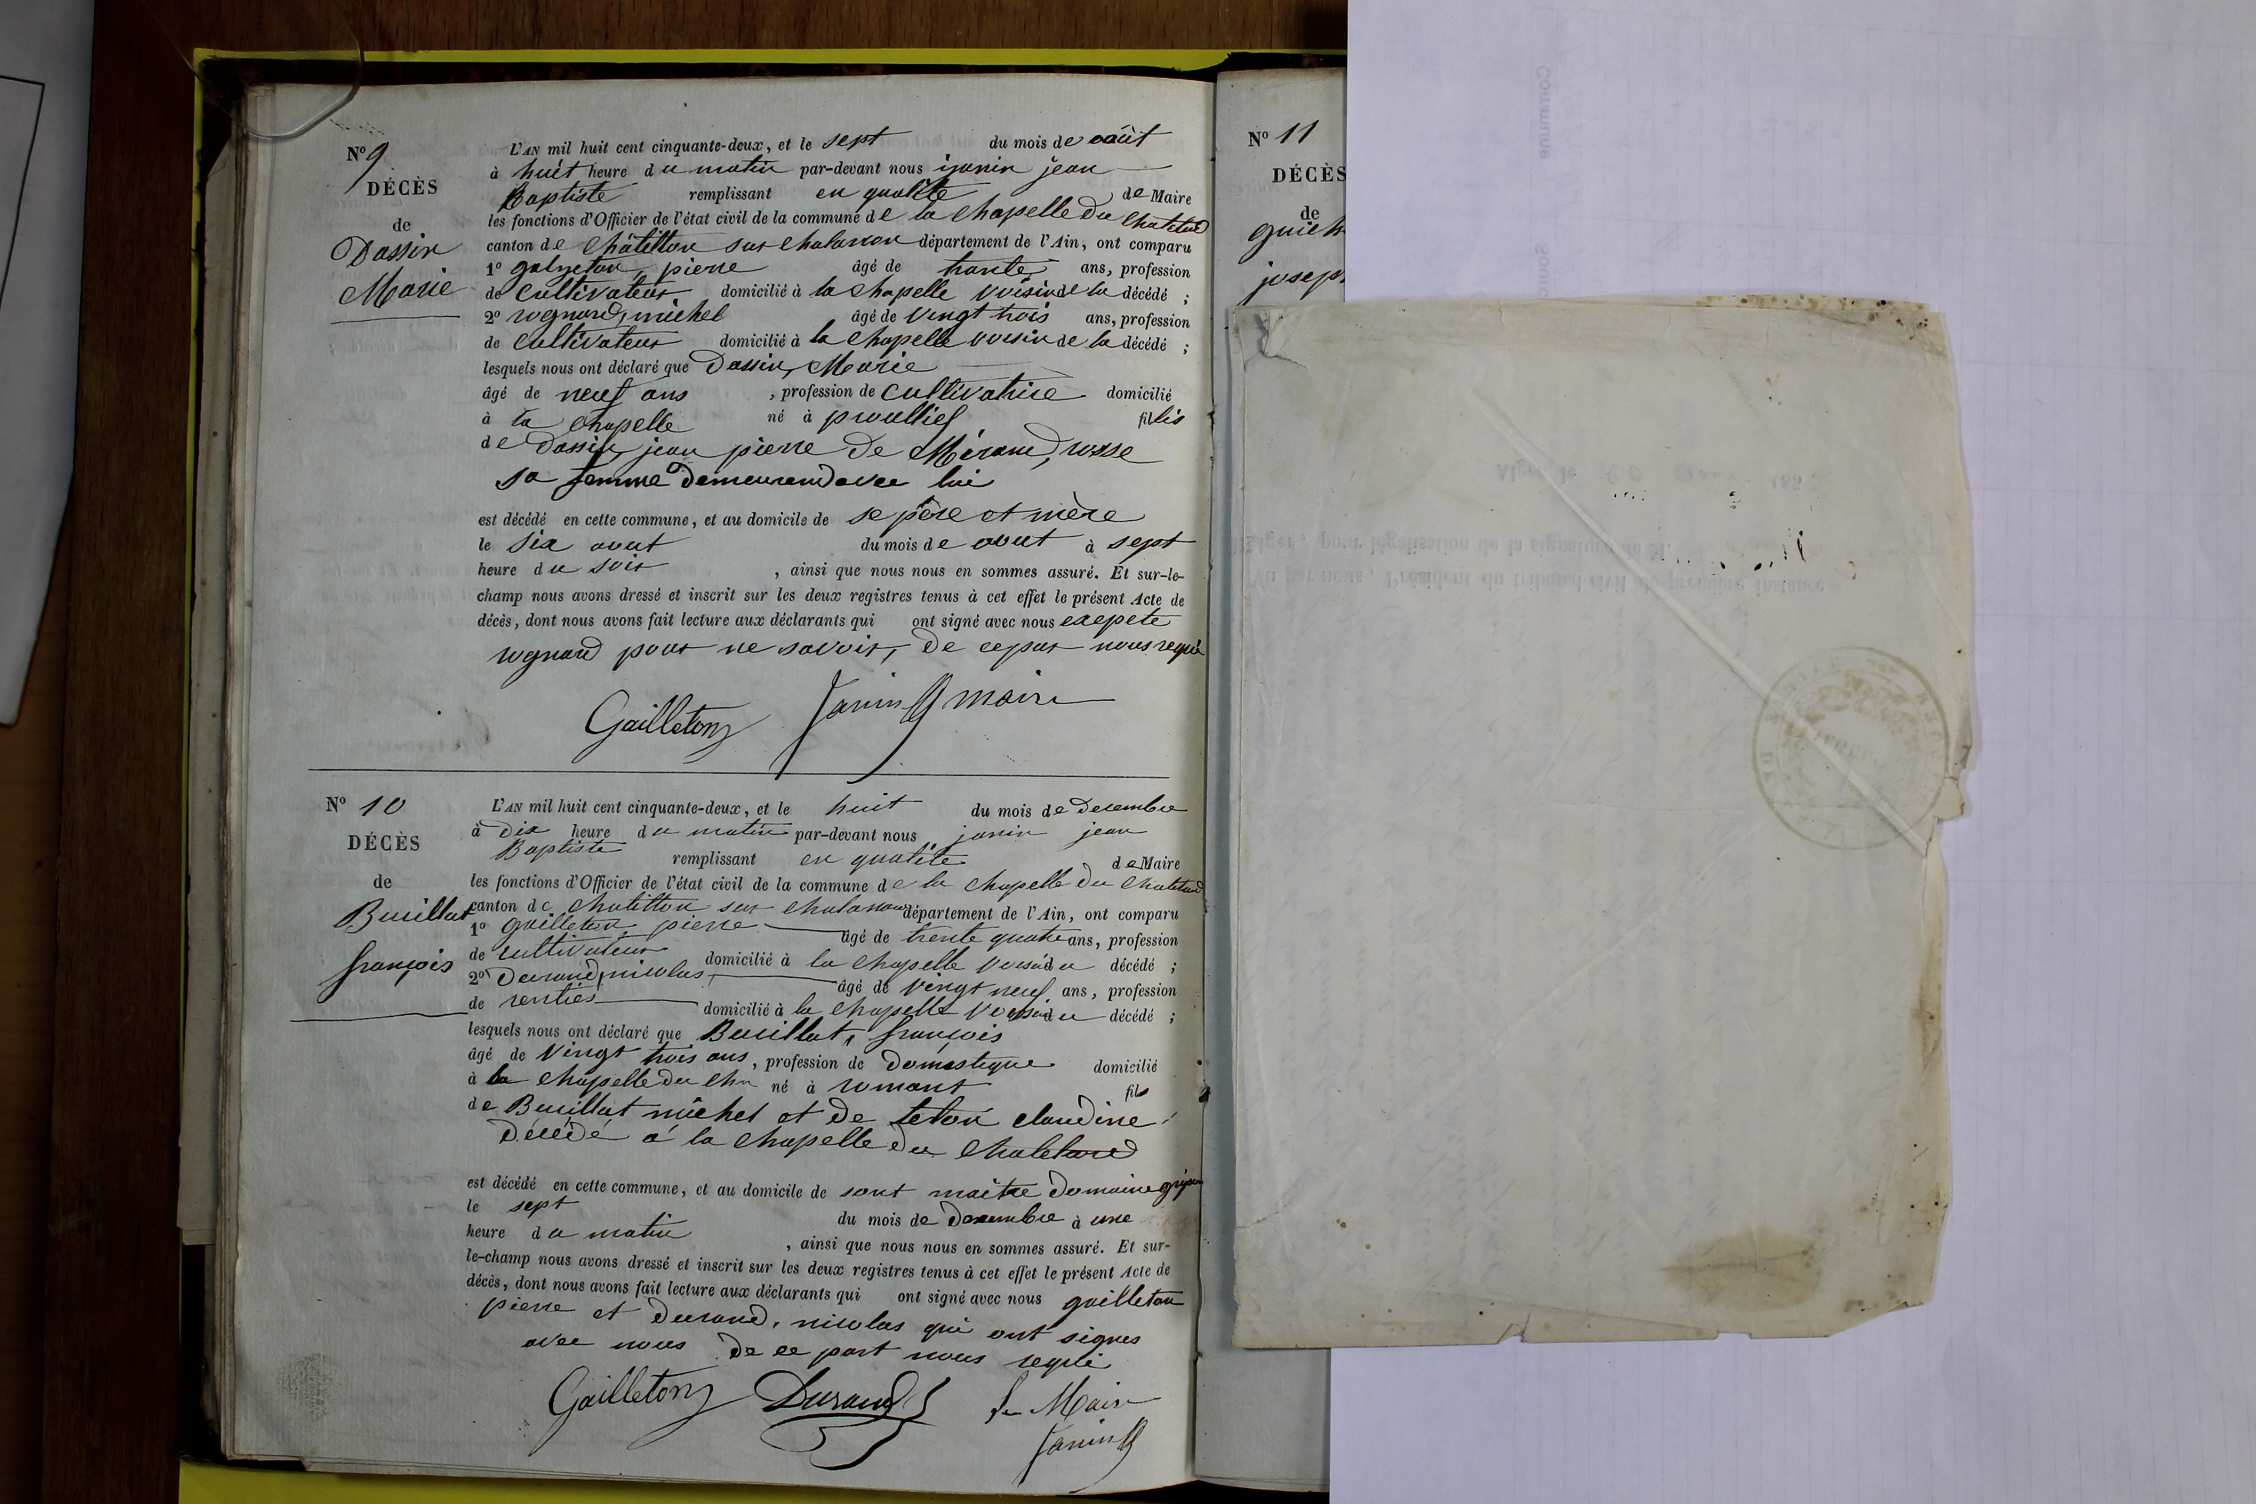 N° 9
DÉCÈS
de
Dassin
Marie
L'AN mil huit cent cinquante-deux, et le sept du mois de août
à huit heure du matin par-devant nous janin jean
Baptiste remplissant en qualité de Maire
les fonctions d'Officier de l'état civil de la commune de la chapelle du chatelard
canton de Châtillon sur chalaronne département de l'Ain, ont comparu
1° galneton, pierre âgé de trante ans, profession
de cultivateur domicilié à la chapelle voisin de la décédé ;
2° rognard, michel âgé de vingt trois ans, profession
de cultivateur domicilié à la chapelle voisin de la décédé ;
lesquels nous ont déclaré que Dassin, Marie
âgé de neuf ans , profession de cultivatrice domicilié
à la chapelle né à fillis
de Dassin, jean pierre de rosse
sa femme demeurend avec lui
est décédé en cette commune, et au domicile de se père et mère
le six avut du mois de avut à sept
heure du soir , ainsi que nous nous en sommes assuré. Et sur-le-
champ nous avons dressé et inscrit sur les deux registres tenus à cet effet le présent Acte de
décès, dont nous avons fait lecture aux déclarants qui ont signé avec nous exepete
rognard pour ne savoir, de ce par nous requi
Gailleton Janin maire
N° 10
DÉCÈS
de
Buillat
françois
L'AN mil huit cent cinquante-deux, et le huit du mois de decembre
à dix heure du matin par-devant nous janin jean
Baptiste remplissant en qualité de Maire
les fonctions d'Officier de l'état civil de la commune de la chapelle du chatelard
canton de chatillon sur chalaronne département de l'Ain, ont comparu
1° gailleton pierre âgé de trente quatre ans, profession
de cultivateur domicilié à la chapelle voisin du décédé ;
2° durand, nicolas, âgé de vingt neuf ans, profession
de rentier domicilié à la chapelle voisin du décédé ;
lesquels nous ont déclaré que Buillat, françois
âgé de vingt trois ans, profession de domestique domicilié
à la chapelle du cha né à romant fils
de Buillat michel et de claudine
décédé a la chapelle du chatelard
est décédé en cette commune, et au domicile de sont maitre domaine
le sept du mois de decembre à une
heure du matin , ainsi que nous nous en sommes assuré. Et sur-
le-champ nous avons dressé et inscrit sur les deux registres tenus à cet effet le présent Acte de
décès, dont nous avons fait lecture aux déclarants qui ont signé avec nous gailleton
pierre et durand, nicolas qui ont signes
avec nous de ce part nous requi
Gailleton Durand Le Maire
Janin
N° 11
DÉCÈS
de
josep